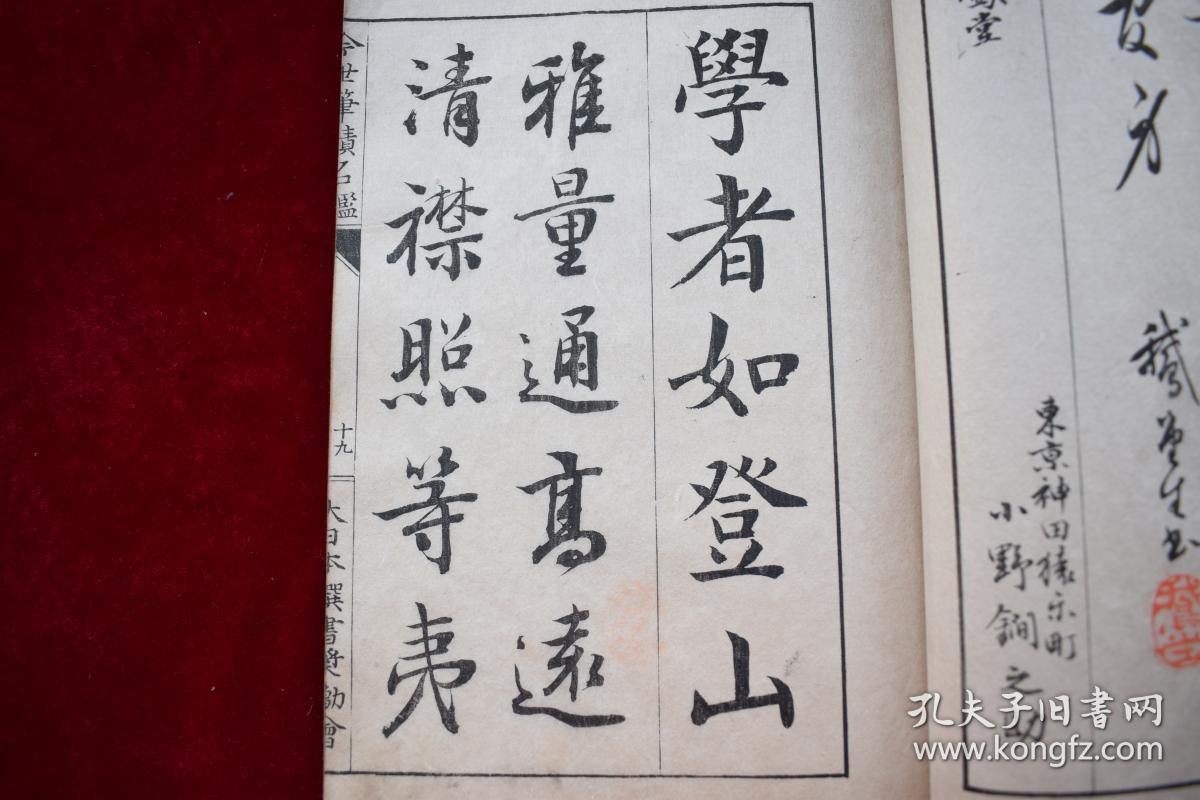 鵞堂生書
東京神田猿樂町
小野鋼之助
學者如登山
雅量通高遠
清襟照等夷
今世筆蹟名鑑
十九
大日本選書奨勵會
孔夫子旧书网
www.kongfz.com